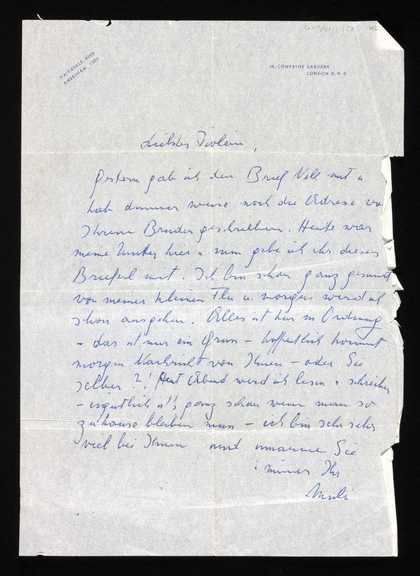 LONDON N.W.6
Gestern gab ich den Brief Nell mit u
hab dummer weise noch die Adresse von
Ihrem Bruder geschrieben. Heute war
meine Mutter hier u nun gebe ich ihr dieses
Brieferl mit. Ich bin schon ganz gesund
von meiner kleinen Flu u. morgen werd ich
schon ausgehen. Alles ist hier in Ordnung
- das ist nur ein Gruss - hoffentlich kommt
morgen Nachricht von Ihnen - oder Sie
selber?! Heut Abend werd ich lesen u schreiben
- eigentlich ists ganz schön wenn man so
zuhause bleiben muss - ich bin sehr sehr
viel bei Ihnen und umarme Sie
immer Ihr